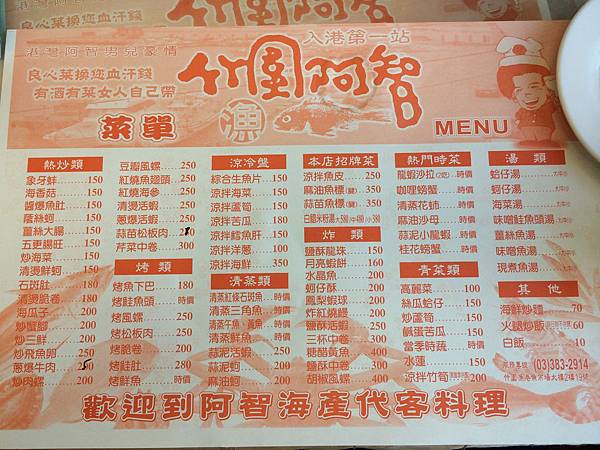 入港第一站
港灣阿智男兒豪情
良心菜換您血汗錢
有酒有菜女人自己帶
竹圍阿智
漁
菜單
MENU
熱炒類
象牙鮮 150
海香菇 150
醬爆魚肚 150
蔭絲蚵 150
薑絲大腸 150
五更腸旺 150
炒海菜 150
清燙鮮蚵 150
石斑肚 180
清燙脆卷 180
海瓜子 200
炒蟹腳 200
炒三鮮 200
炒飛魚卵 250
蔥爆牛肉
炒肉鰾 200
豆瓣風螺 250
紅燒魚翅頭 250
紅燒海參 250
清燙活蝦 250
蔥爆活蝦 250
蒜苗松板肉
芹菜中卷 300
烤類
烤魚下巴 180
烤鮭魚頭 時價
烤風螺 250
烤松板肉 250
烤脆卷 200
烤鮭肚 280
烤鮮魚 時價
涼冷盤
綜合生魚片 150
涼拌海菜 150
涼拌蘆筍 150
涼拌苦瓜 180
涼拌鱈魚肝 150
涼拌洋蔥 100
涼拌海鮮 350
清蒸類
清蒸紅條石斑魚 時價
清蒸三角魚 時價
清蒸午魚、黃魚 時價
清蒸鮮魚 時價
蒜泥活蝦 250
蒜泥蚵 200
麻油蚵 200
本店招牌菜
涼拌魚皮 250
麻油魚鰾 350
蒜苗魚鰾 350
炸類
鹽酥龍珠 150
月亮蝦餅 160
水晶魚 200
蚵仔酥 200
鳳梨蝦球 200
炸紅燒鰻 200
鹽酥活蝦 250
三杯中卷 300
糖醋黃魚 300
鹽酥中卷 300
胡椒風螺 300
熱門時菜
龍蝦沙拉(2吃) 時價
咖哩螃蟹 時價
清蒸花蛤 時價
麻油沙母 時價
蒜泥小龍蝦 時價
桂花螃蟹 時價
青菜類
高麗菜 100
絲瓜蛤仔 150
炒蘆筍 150
鹹蛋苦瓜 150
當季時蔬 時價
水蓮 150
湯類
蛤仔湯
蚵仔湯
海菜湯
味噌鮭魚頭湯
薑絲魚湯
味噌魚湯
現煮魚湯
其他
海鮮炒麵
火腿炒飯 60
白飯 10
服務專線 (03)383-2914
竹圍漁港魚市場大樓2樓19號
歡迎到阿智海產代客料理